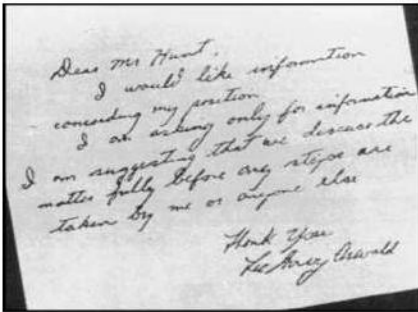 Dear Mr Hunt,
I would like information
concerding my position.
I am asking only for information
I am suggesting that we discuss the
matter fully before any steps are
taken by me or anyone else
Thank You
Lee Harvey Oswald